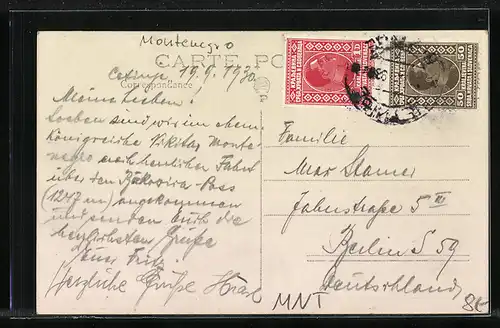 Montenegro
CARTE PO
Correspondance
Cetinje 19.9.1930.
Meine Lieben!
Soeben sind wir im ehem.
Königreiche Nikitas Monte-
negro nach herrlicher Fahrt
über den Pass
(1247 m) angekommen
und senden Euch die
herzlichsten Grüße
Euer Fritz.
Herzliche Grüße
Familie
Max Stamer
Jahnstraße 5 III
Berlin S 59
Deutschland
MNT
1 D
50 50